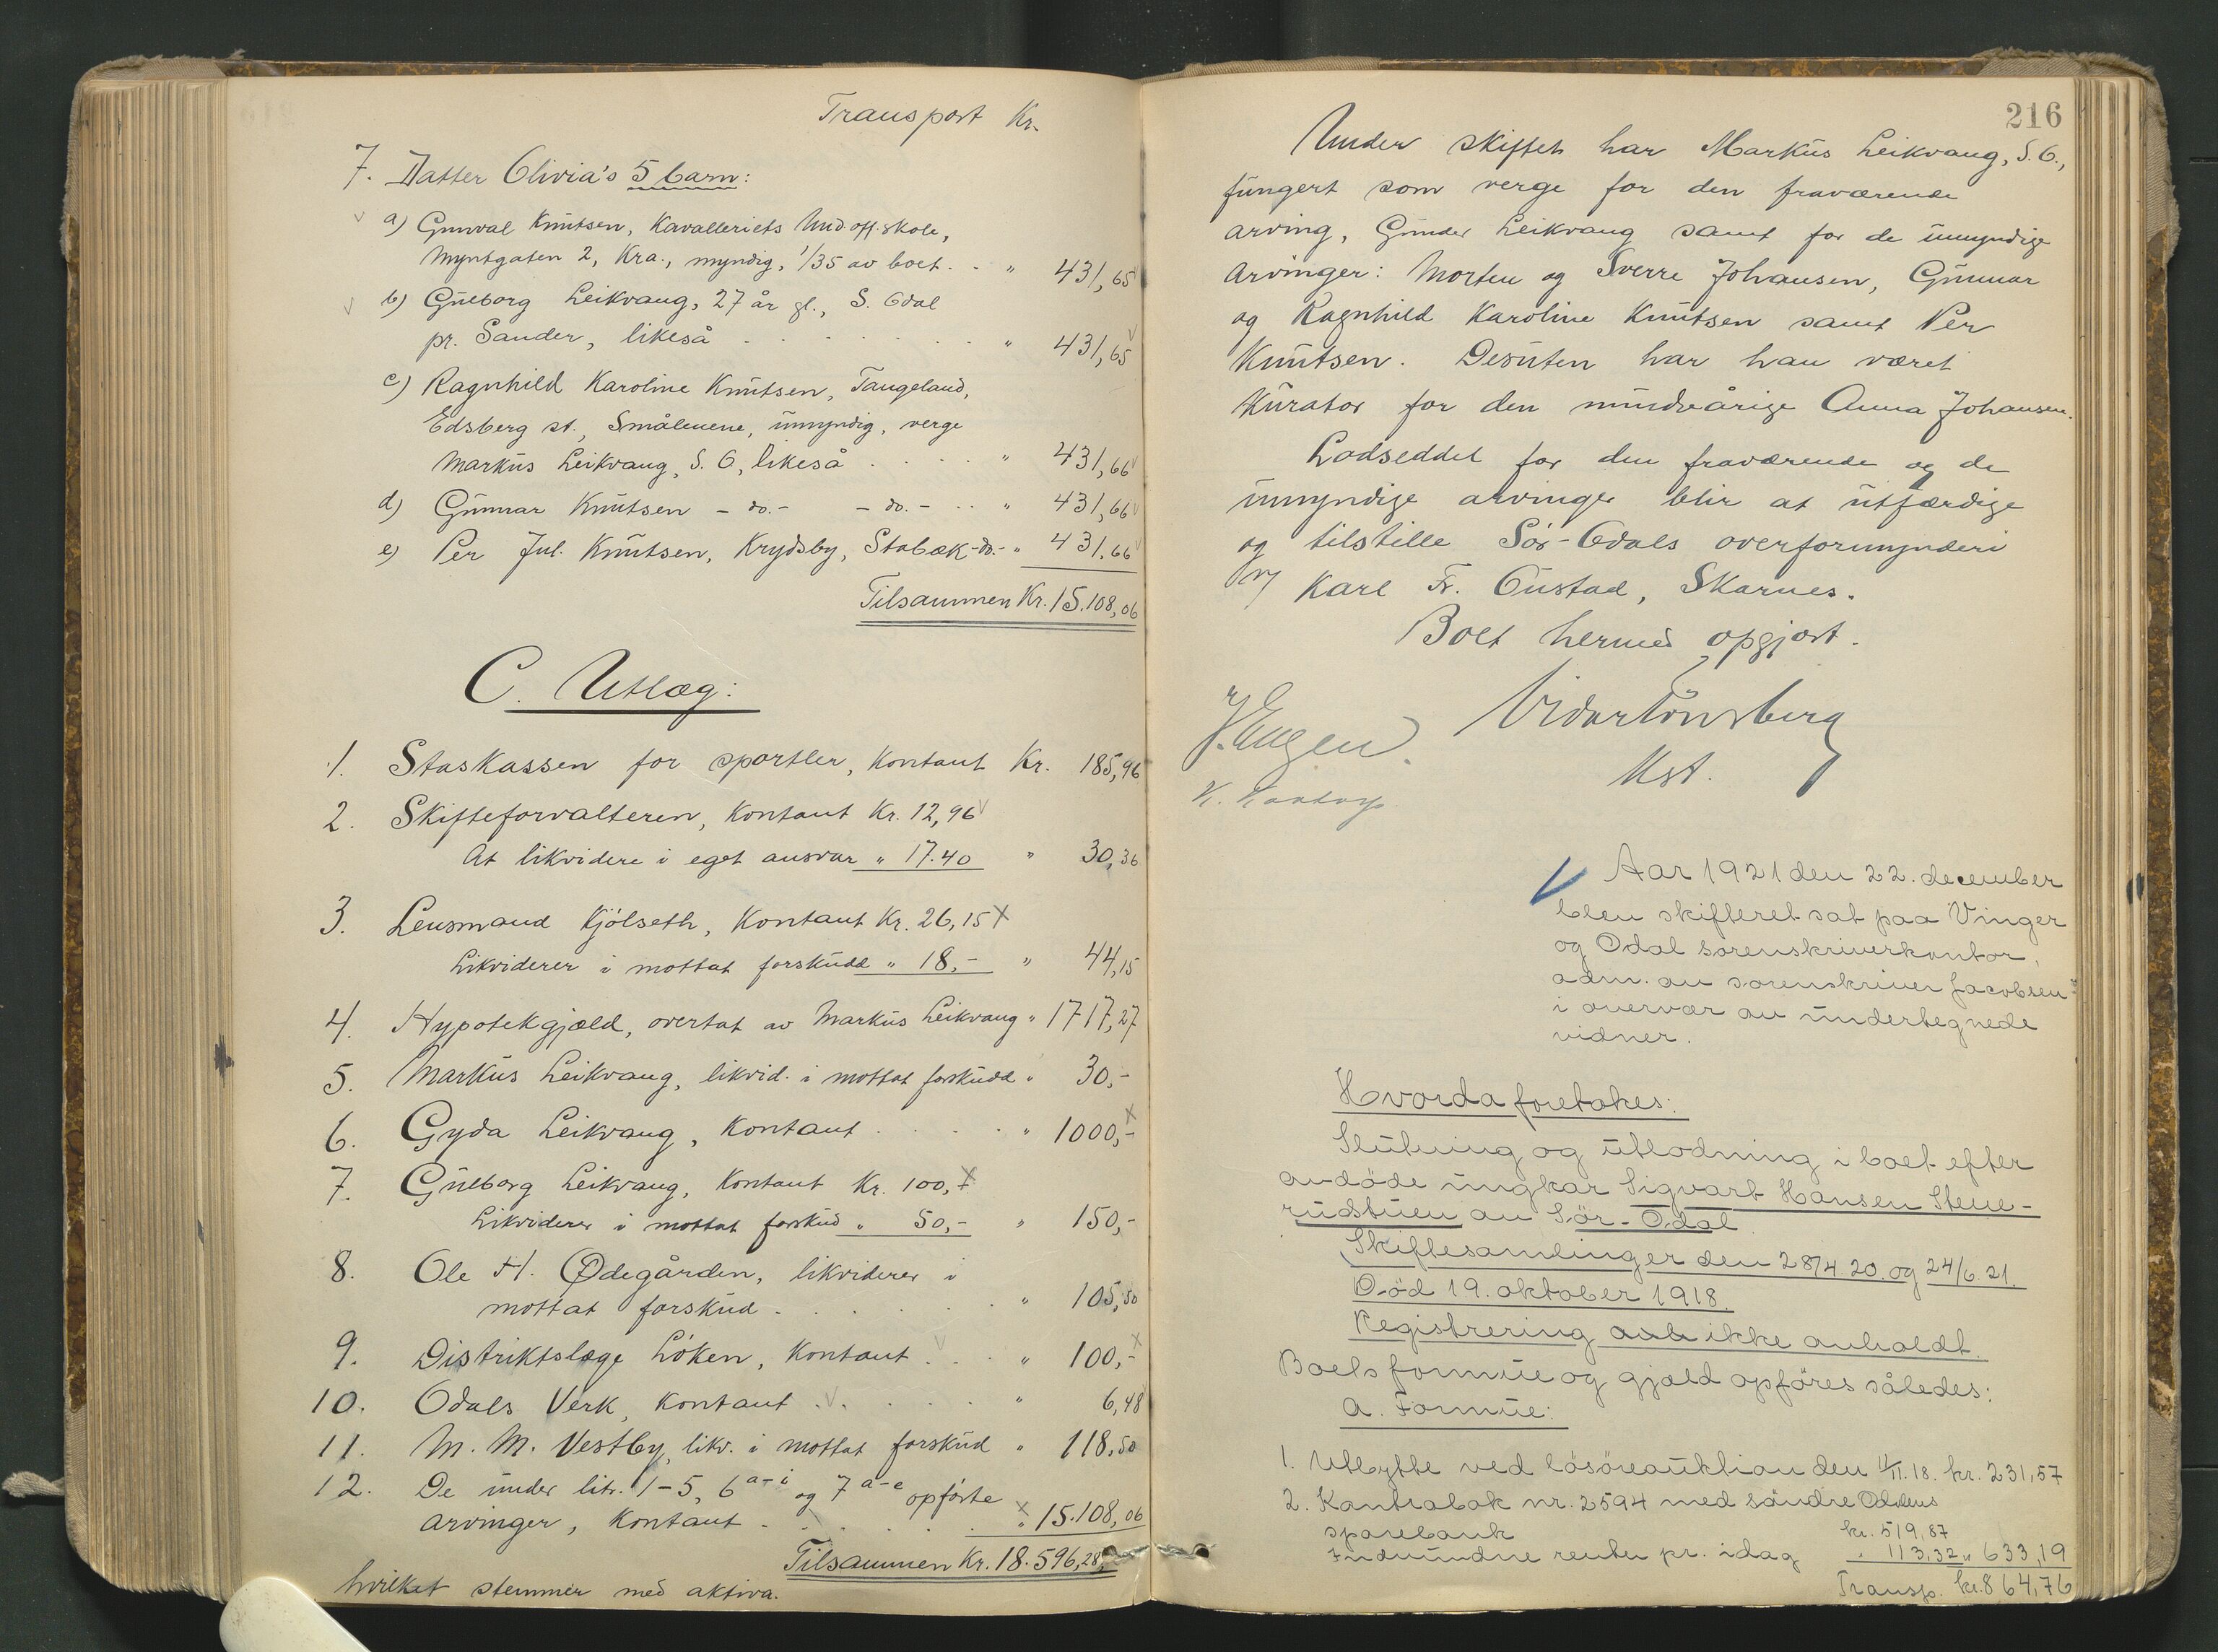 Transport Kr.
7. Datter Olivia's 5 barn:
a) Gunval Knutsen, Kavalleriets Und.off.skole,
Myntgaten 2, Kra., myndig, 1/35 av boet . . " 431,65
b) Gulborg Leikvang, 27 år gl., S. Odal
pr. Sander, likeså . . . . . . . . " 431,65
c) Ragnhild Karoline Knutsen, Tangeland,
Edsberg st., Smålenene, umyndig, verge
Markus Leikvang, S. O, likeså . . . . . " 431,66
d) Gunnar Knutsen - do. - - do. - . . " 431,66
e) Per Jul. Knutsen, Krydsby, Stabæk - do. - " 431,66
Tilsammen Kr. 15.108,06
C. Utlæg:
1. Staskassen for sportler, kontant Kr. 185,96
2. Skifteforvalteren, kontant Kr. 12,96
At likvidere i eget ansvar " 17.40 " 30,36
3. Lensmand Kjölseth, kontant Kr. 26,15
Likviderer i mottat forskudd " 18,- " 44,15
4. Hypotekgjæld, overtat av Markus Leikvang " 1717,27
5. Markus Leikvang, likvid. i mottat forskudd " 30,-
6. Gyda Leikvang, kontant . . . . . " 1000,-
7. Gulborg Leikvang, kontant Kr. 100,-
Likviderer i mottat forskud " 50,- " 150,-
8. Ole H. Ødegården, likviderer i
mottat forskud . . . . . . . " 105,50
9. Distriktslæge Löken, kontant . . . " 100,-
10. Odals Verk, kontant . . . . . . " 6,48
11. M. M. Vestby, likv. i mottat forskud " 118,50
12. De under litr. 1-5, 6 a-i og 7 a-e opförte
arvinger, kontant . . . . . . " 15.108,06
Tilsammen Kr. 18.596,28,
hvilket stemmer med aktiva.
216
Under skiftet har Markus Leikvang, S. O.,
fungert som verge for den fraværende
arving, Gunder Leikvang samt for de umyndige
arvinger: Morten og Sverre Johansen, Gunnar
og Ragnhild Karoline Knutsen samt Per
Knutsen. Desuten har han været
kurator for den mindreårige Anna Johansen.
Lodseddel for den fraværende og de
umyndige arvinger blir at utfærdige
og tilstille Sör-Odals overformynderi
v/ Karl Fr. Oustad, Skarnes.
Boet hermed opgjort.
Vidar Tönsberg
Kst.
J. Engen.
Aar 1921 den 22. december
blev skifteret sat paa Vinger
og Odal sorenskriverkontor,
adm. av sorenskriver Jacobsen
i overvær av undertegnede
vidner.
Hvorda foretokes:
Slutning og utlodning i boet efter
avdöde ungkar Sigvart Hansen Stene-
rudstuen av Sör-Odal.
Skiftesamlinger den 28/4. 20. og 24/6. 21.
Död 19. oktober 1918.
Registrering ikke avholdt.
Boets formue og gjæld opföres således:
A. Formue:
1. Utbytte ved lösöreauktion den 11/11. 18. kr. 231,57
2. Kontrabok nr. 2594 med söndre Odalens
sparebank kr. 519,87
Indvundne renter pr. idag " 113,32 " 633,19
Transp. kr. 864,76